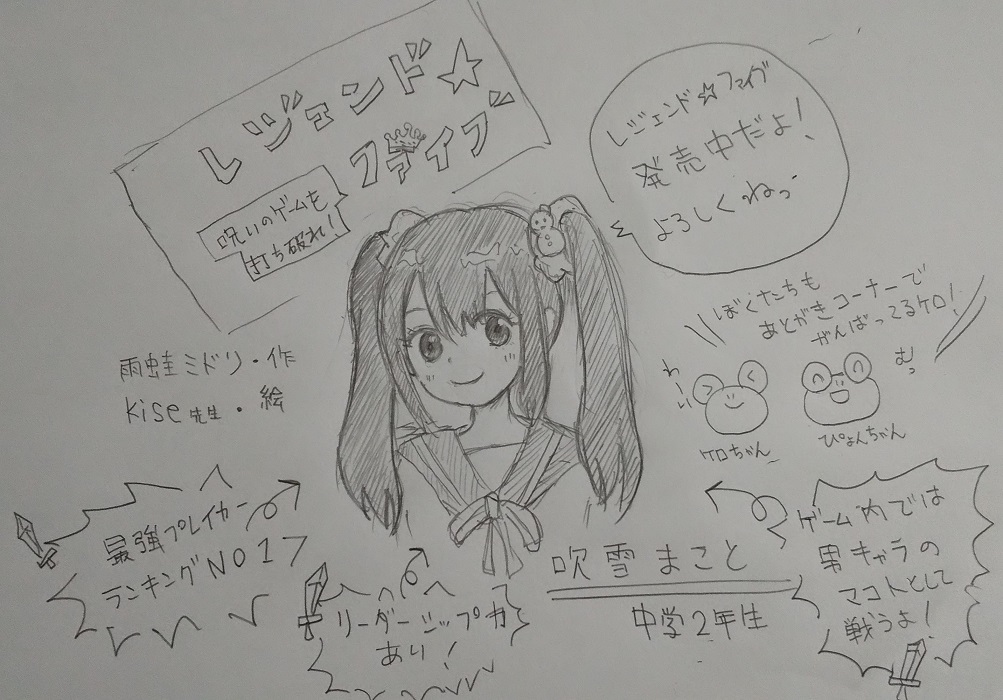 レジェンド☆
ファイブ
呪いのゲームを
打ち破れ!
レジェンド☆ファイブ
発売中だよ!
よろしくねっ
ぼくたちも
あとがきコーナーで
がんばってるケロ!
わーい
むっ
ケロちゃん
ぴょんちゃん
雨蛙ミドリ・作
Kise先生・絵
最強プレイヤー
ランキングNO1
リーダーシップ力
あり!
吹雪まこと
中学2年生
ゲーム内では
男キャラの
マコトとして
戦うよ!